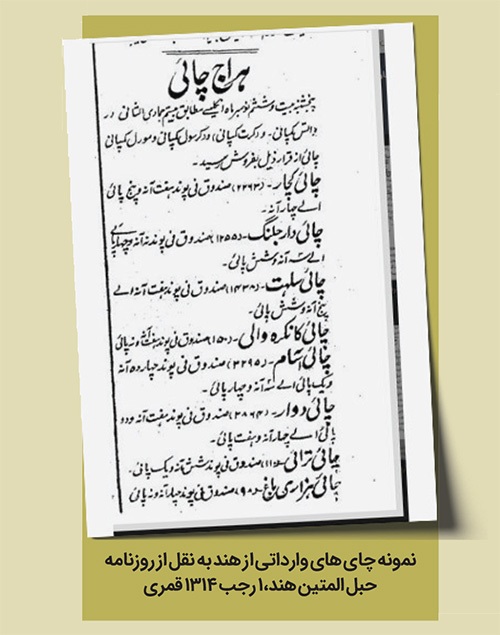 هراج چائی
پنجشنبه بیست و ششم نومبر ماه انگلیسے مطابق بیستم جمادی الثانی در
کمپانی - و در کت کمپانی و در کرسول کمپانی و مورل کمپانی
چائی از قرار ذیل بفروش رسید -
چائی کچار - (۲۲۶۳) صندوق فی پوند هفت آنه و پنج پائی
الے چهار آنه -
چائی دارجلنگ - (۱۲۵۵) صندوق فی پوند نه آنه و چهار پائے
الے سه آنه و شش پائی -
چائی سلهت - (۱۴۳۸) صندوق فی پوند هفت آنه الے
پنج آنه و شش پائی -
چائی کانگره والی - (۱۵۰) صندوق فی پوند هفت آنه و نه پائی
چائی آشام - (۳۲۹۵) صندوق فی پوند چهارده آنه
و یک پائی الے سه آنه و چهار پائی -
چائی دوار - (۲۸۶۴) صندوق فی پوند هفت آنه و دو
پائی الے چهار آنه و هفت پائی -
چائی ترائی - (۱۱۵) صندوق فی پوند شش آنه و یک پائی -
چائی هزاری باغ - (۹۰) صندوق فی پوند چهار آنه و نه پائی
نمونه چای های وارداتی از هند به نقل از روزنامه
حبل المتین هند، ۱ رجب ۱۳۱۴ قمری